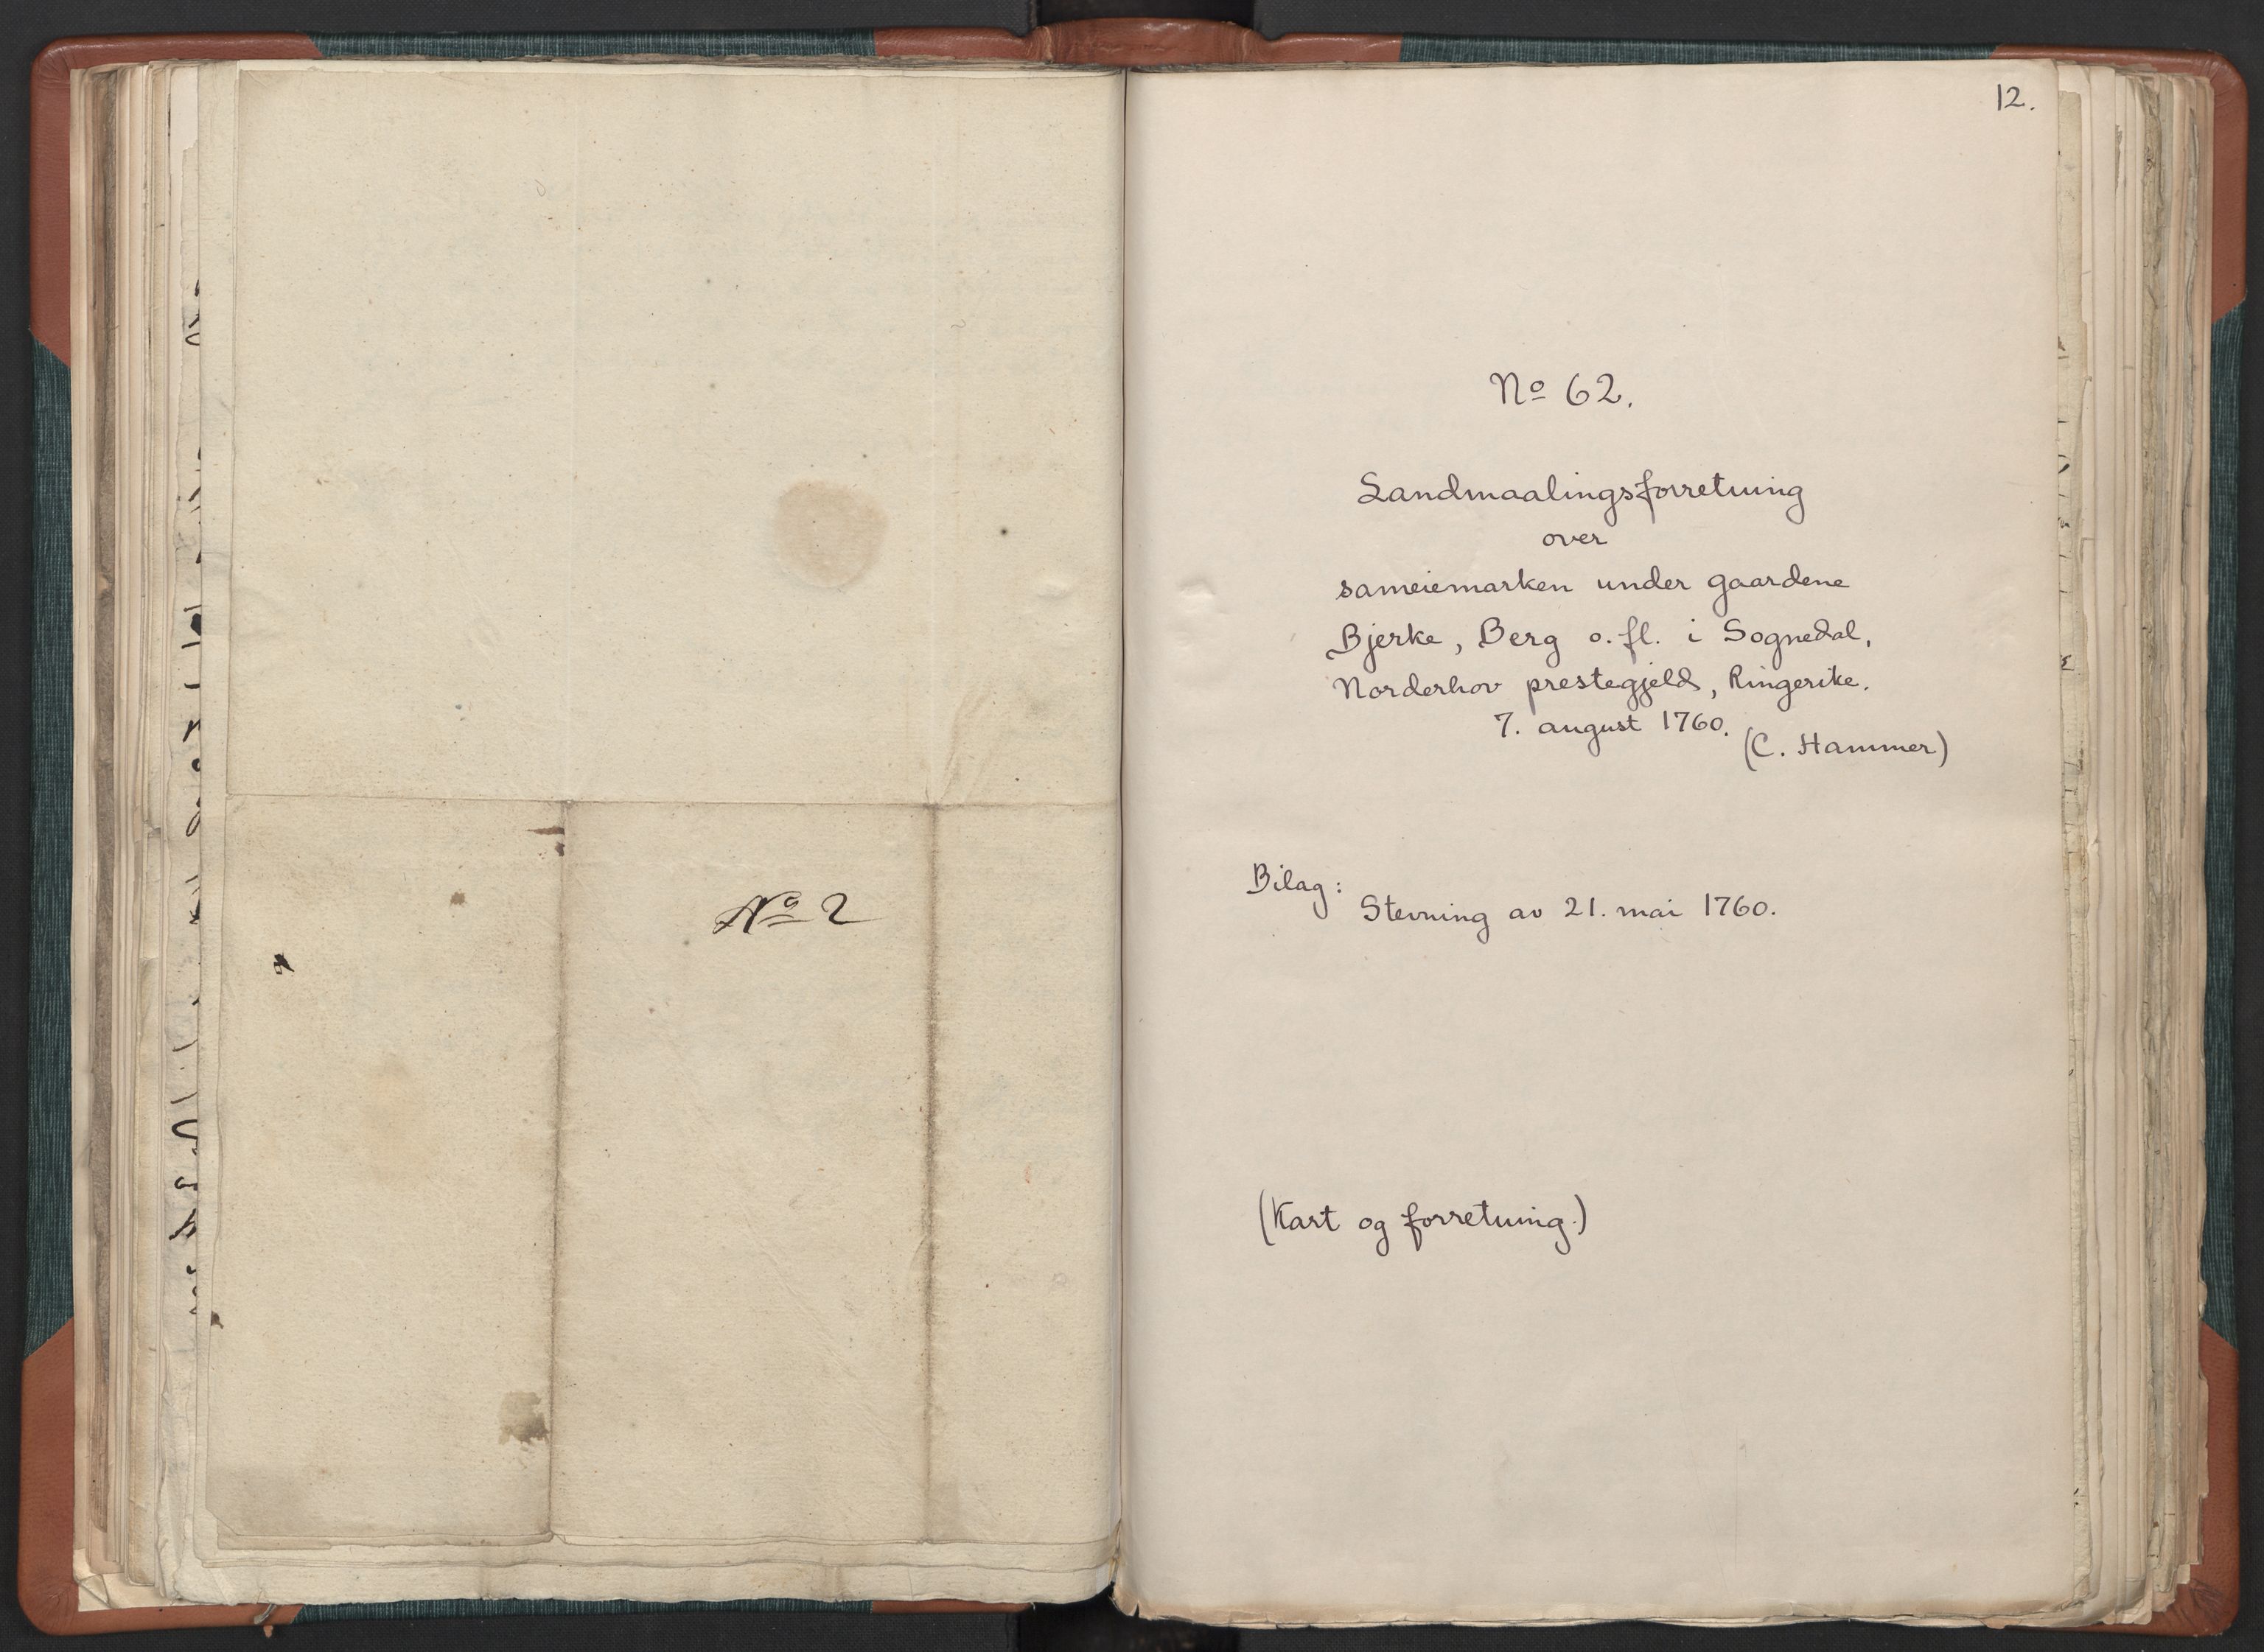 No 2
12.
No 62.
Landmaalingsforretning
over
sameiemarken under gaardene
Bjerke, Berg o. fl. i Sognedal,
Norderhov prestegjeld, Ringerike.
7. august 1760.
(C. Hammer)
Bilag:
Stevning av 21. mai 1760.
(Kart og forretning.)